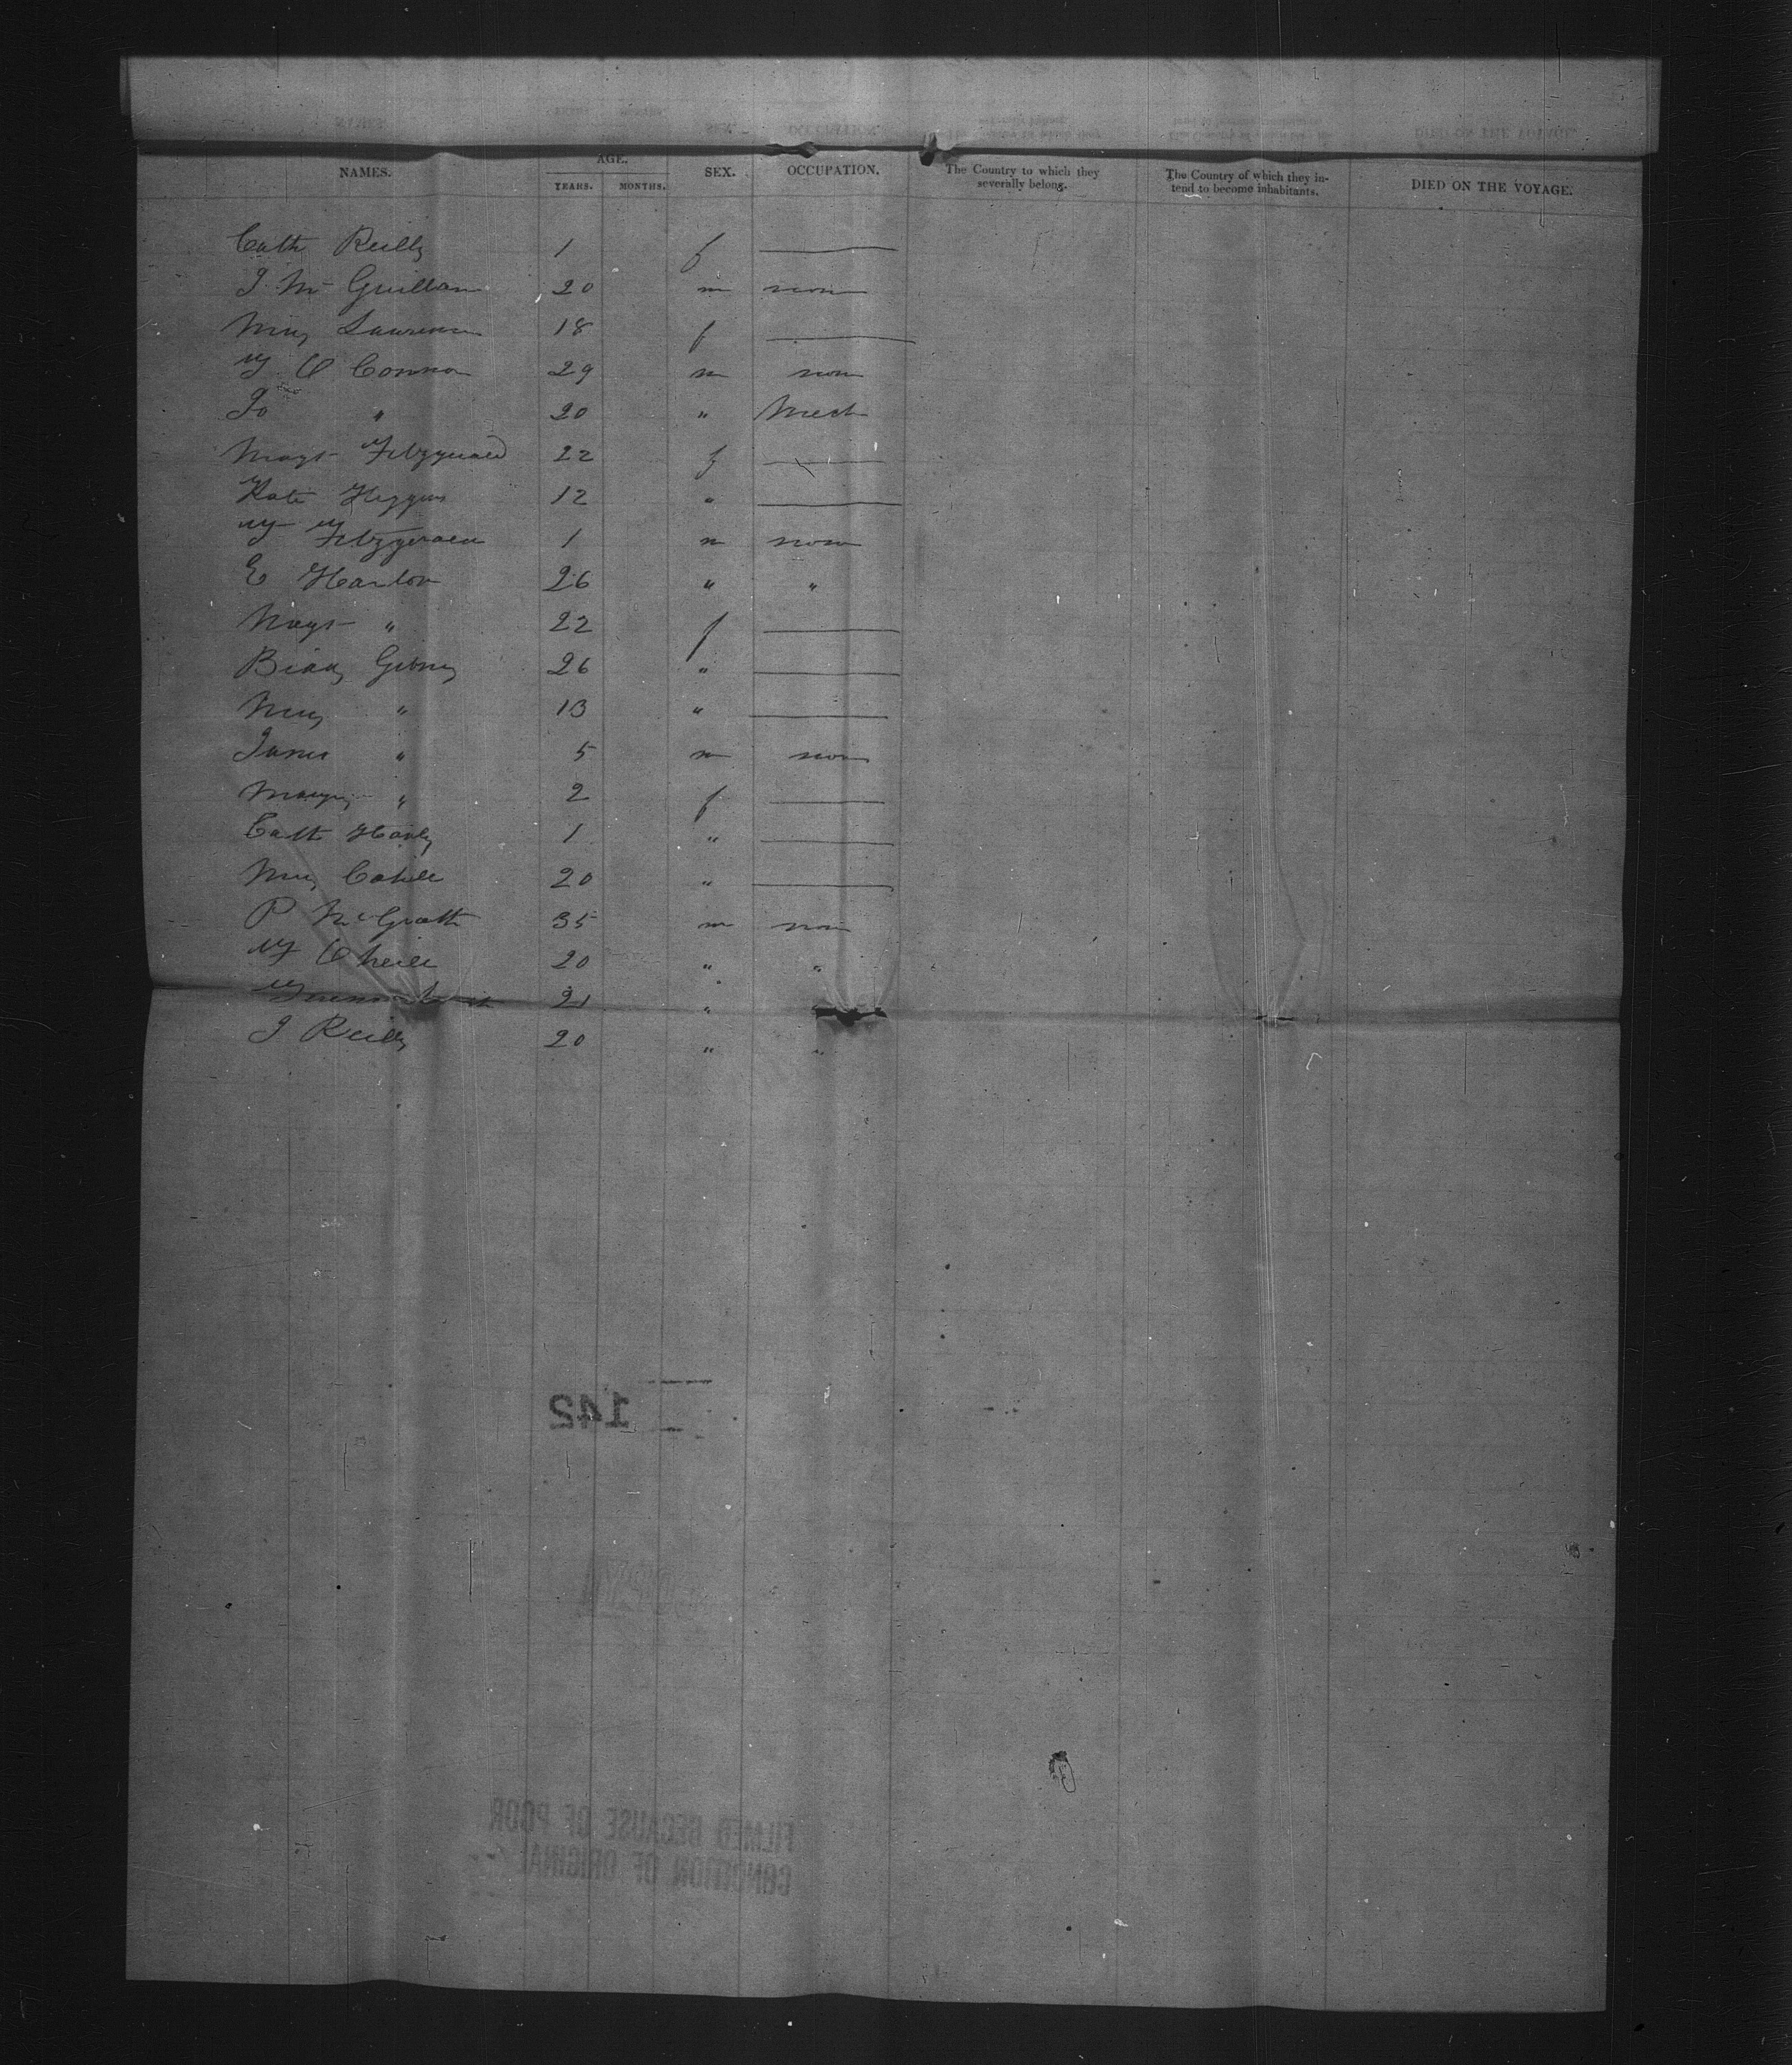 NAMES. AGE. YEARS. MONTHS. SEX. OCCUPATION. The Country to which they severally belong. The Country of which they intend to become inhabitants. DIED ON THE VOYAGE.
Cath Reilly 1 f
J Mc 20 m non
Mary Lawrence 18 f
O Connor 29 m non
Jo " 20 " Mech
Magt Fitzgerald 22 f
Kate Higgins 12 "
Fitzgerald 1 m non
E Hanlon 26 " "
Magt " 22 f
Gibney 26 "
Mary " 13 "
James " 5 m non
" 2 f
Cath 1 "
Mary Cahill 20 "
P McGrath 35 m non
O Neill 20 " "
21 "
J Reilly 20 " "
142
FILMED BECAUSE OF POOR
CONDITION OF ORIGINAL